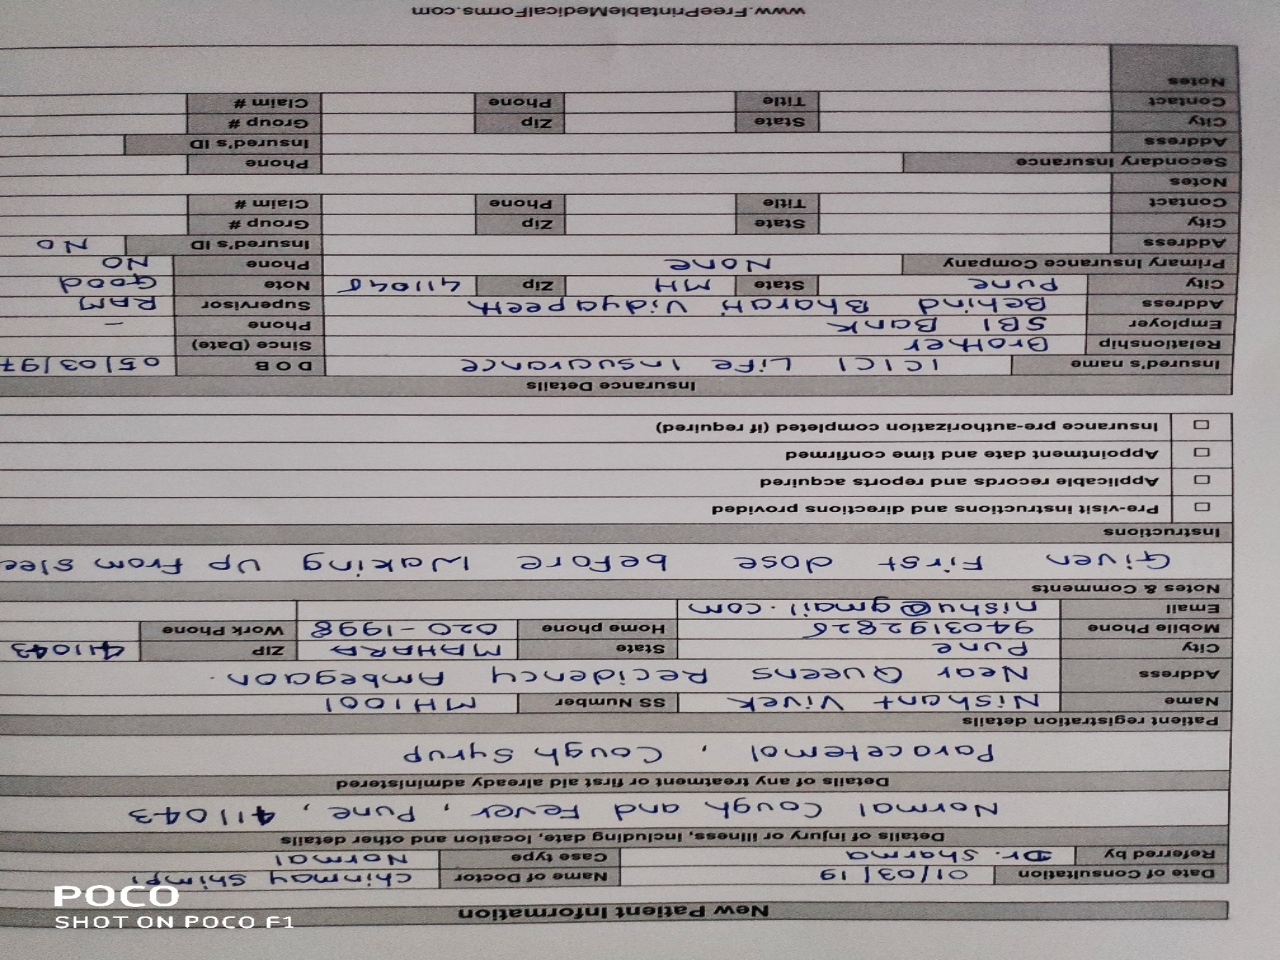 New Patient Information
Date of Consultation 01/03/19 Name of Doctor Chinmay Shimpi
Referred by Dr. Sharma Case type Normal
Details of injury or illness, including date, location and other details
Normal Cough and Fever, Pune, 411043
Details of any treatment or first aid already administered
Paracetemol, Cough Syrup
Patient registration details
Name Nishant Vivek SS Number MH1001
Address Near Queens Recidency Ambegaon.
City Pune State MAHARA ZIP 411043
Mobile Phone 9403192826 Home phone 020-1998 Work Phone
Email nishu@gmail.com
Notes & Comments
Given First dose before Waking up From slee
Instructions
Pre-visit instructions and directions provided
Applicable records and reports acquired
Appointment date and time confirmed
Insurance pre-authorization completed (if required)
Insurance Details
Insured's name ICICI Life Insurance DOB 05/03/97
Relationship Brother Since (Date)
Employer SBI Bank Phone –
Address Behind Bharati Vidyapeeth Supervisor RAM
City Pune State MH Zip Note Good
Primary Insurance Company None Phone NO
Address Insured's ID NO
City State Zip Group #
Contact Title Phone Claim #
Notes
Secondary Insurance Phone
Address Insured's ID
City State Zip Group #
Contact Title Phone Claim #
Notes
www.FreePrintableMedicalForms.com
POCO
SHOT ON POCO F1